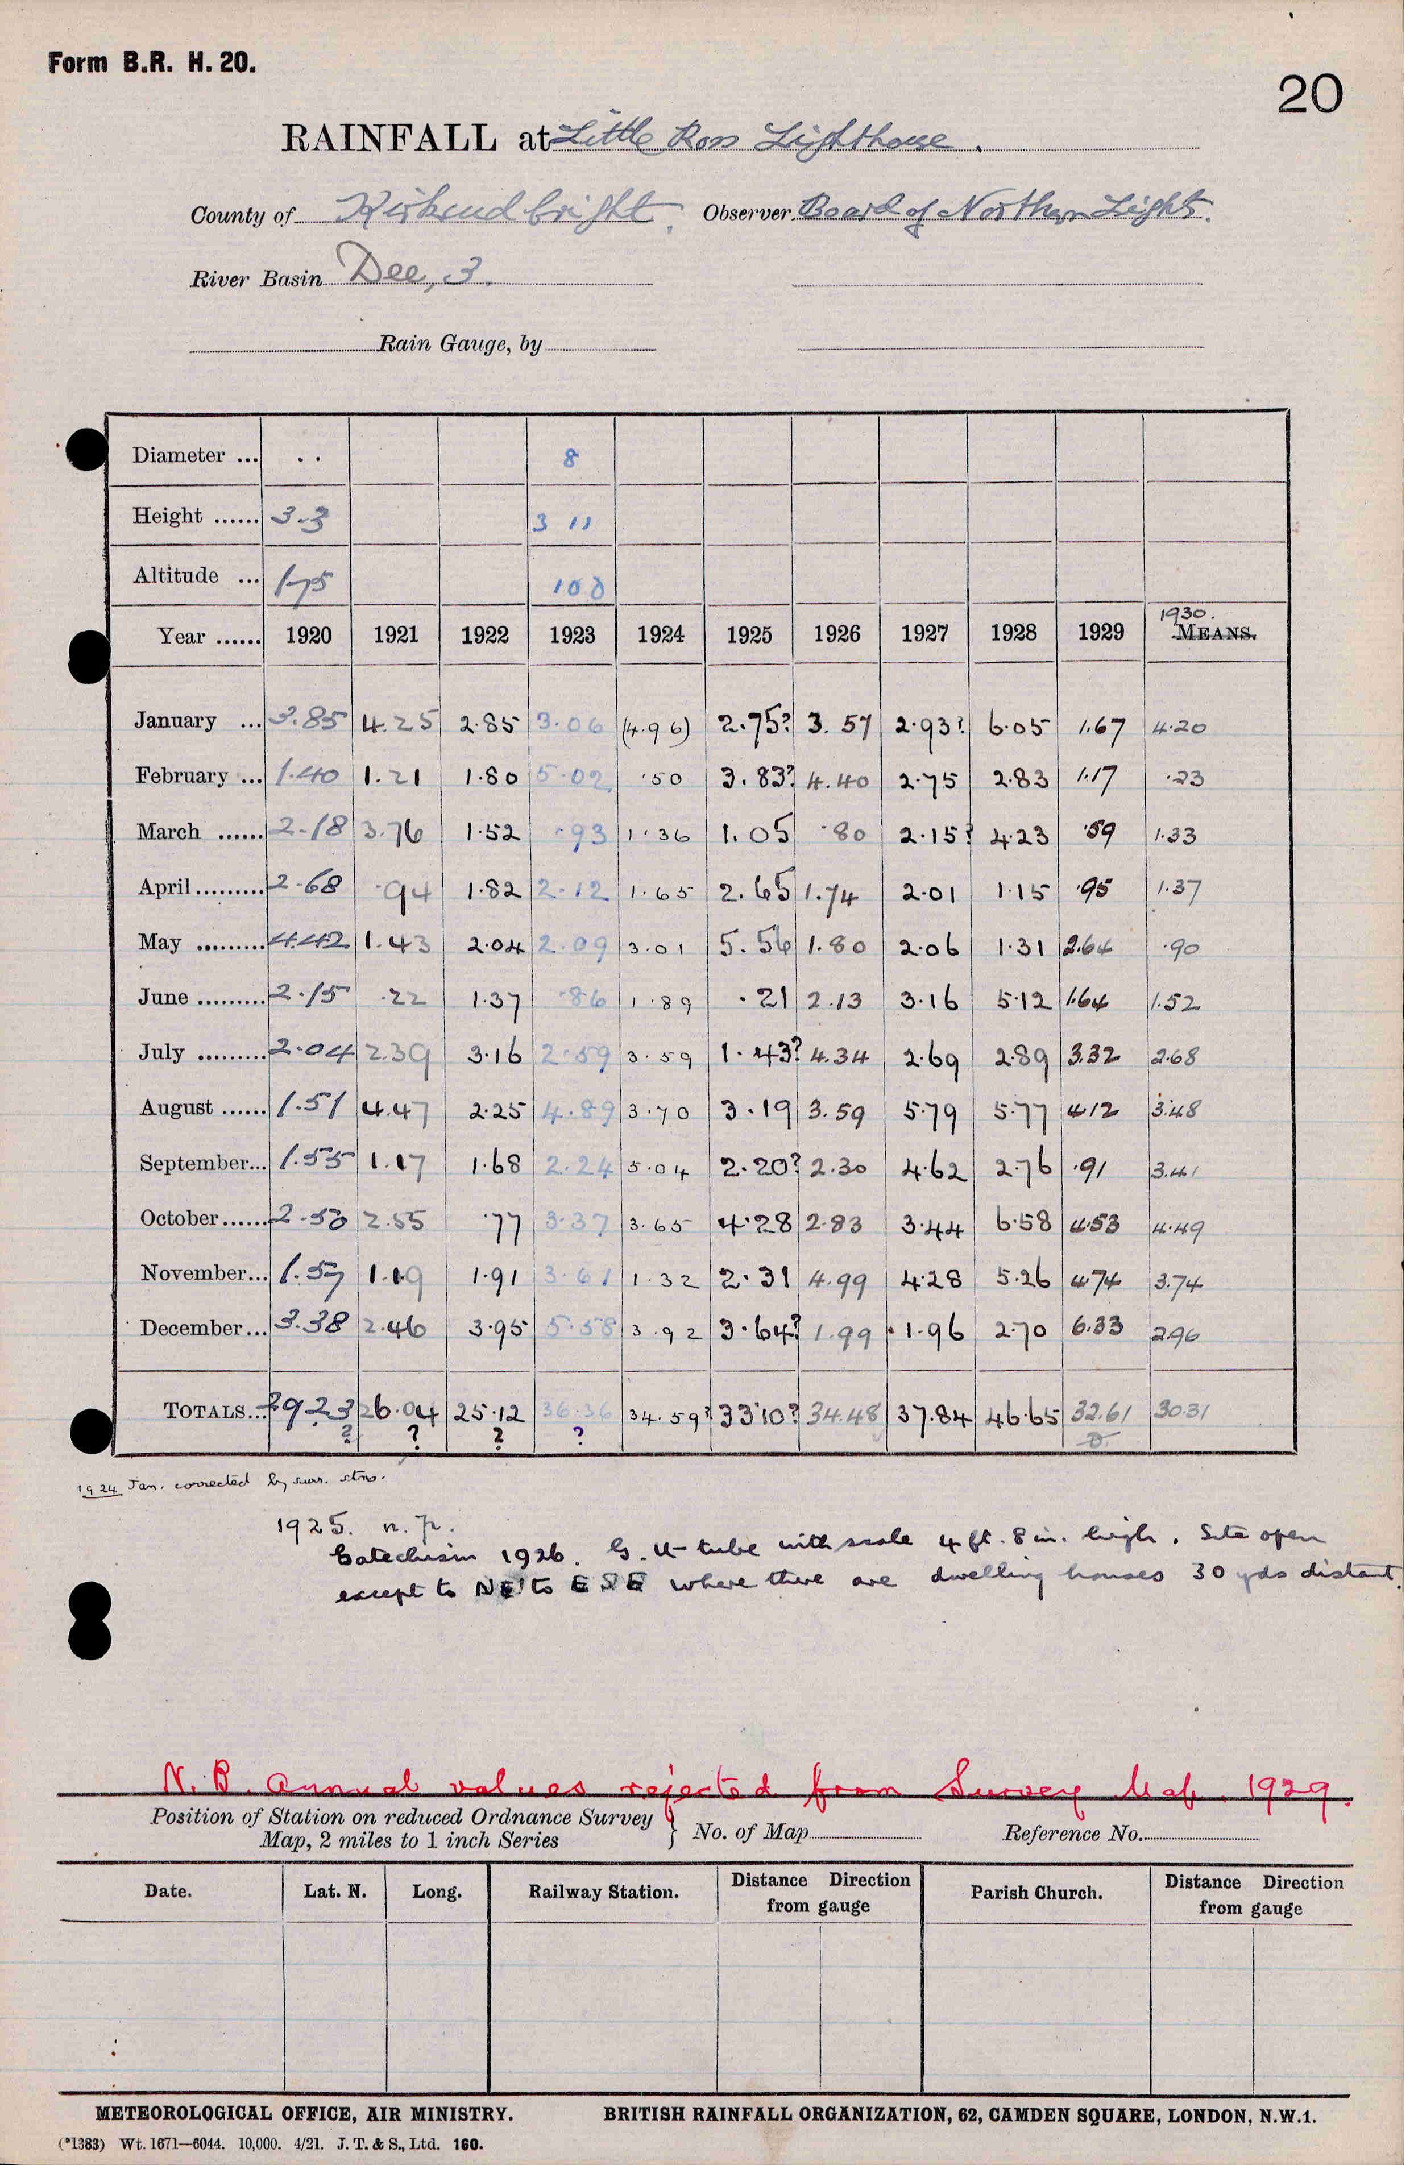 Form B.R. H. 20.
20
RAINFALL at Little Ross Lighthouse.
County of Kirkcudbright. Observer. Board of Northern Lights.
River Basin Dee, 3.
Rain Gauge, by
Diameter ... .. 8
Height ...... 3.3 3 11
Altitude ... 175 100
1930.
Year ...... 1920 1921 1922 1923 1924 1925 1926 1927 1928 1929 MEANS.
January ... 3.85 4.25 2.85 3.06 (4.96) 2.75? 3.57 2.93? 6.05 1.67 4.20
February ... 1.40 1.21 1.80 5.02 .50 3.83? 4.40 2.75 2.83 1.17 .23
March ...... 2.18 3.76 1.52 .93 1.36 1.05 .80 2.15? 4.23 .59 1.33
April ......... 2.68 .94 1.82 2.12 1.65 2.65 1.74 2.01 1.15 .95 1.37
May ......... 4.42 1.43 2.04 2.09 3.01 5.56 1.80 2.06 1.31 2.64 .90
June ......... 2.15 .22 1.37 .86 1.89 .21 2.13 3.16 5.12 1.64 1.52
July ......... 2.04 2.39 3.16 2.59 3.59 1.43? 4.34 2.69 2.89 3.32 2.68
August ...... 1.51 4.47 2.25 4.89 3.70 3.19 3.59 5.79 5.77 4.12 3.48
September... 1.55 1.17 1.68 2.24 5.04 2.20? 2.30 4.62 2.76 .91 3.41
October...... 2.50 2.55 .77 3.37 3.65 4.28 2.83 3.44 6.58 4.53 4.49
November... 1.57 1.19 1.91 3.61 1.32 2.31 4.99 4.28 5.26 4.74 3.74
December... 3.38 2.46 3.95 5.58 3.92 3.64? 1.99 1.96 2.70 6.33 2.96
TOTALS... 29.23 26.04 25.12 36.36 34.59? 33.10? 34.48 37.84 46.65 32.61 30.31
? ? ? ?
1924 Jan. corrected by surr. stns.
1925. n. p.
Catechism 1926. G. U-tube with scale 4 ft. 8 in. high. Site open
except to NE to ESE where there are dwelling houses 30 yds distant.
N.B. Annual values rejected from Survey Map. 1929.
Position of Station on reduced Ordnance Survey
Map, 2 miles to 1 inch Series } No. of Map Reference No.
Date. Lat. N. Long. Railway Station. Distance Direction from gauge Parish Church. Distance Direction from gauge
METEOROLOGICAL OFFICE, AIR MINISTRY. BRITISH RAINFALL ORGANIZATION, 62, CAMDEN SQUARE, LONDON, N.W.1.
(*1383) Wt. 1671—6044. 10,000. 4/21. J. T. & S., Ltd. 160.